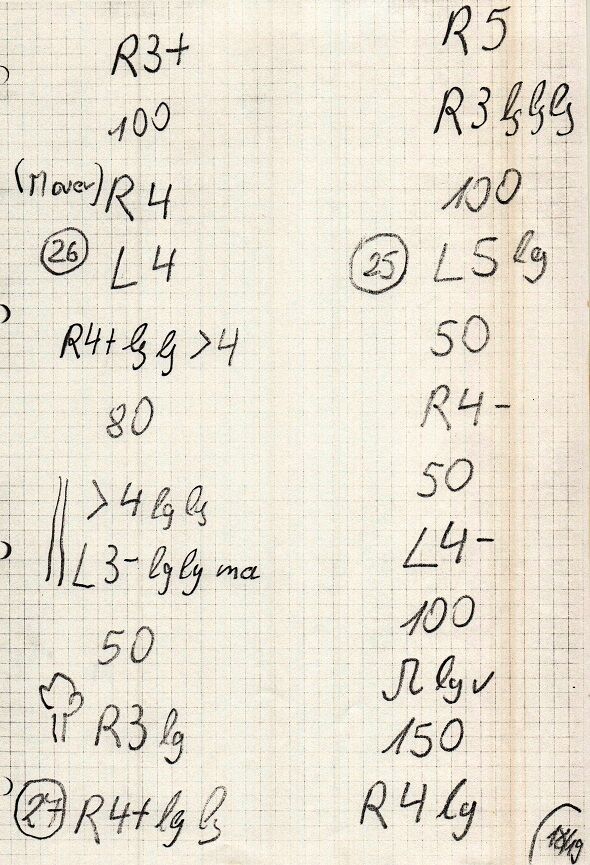 R3+
100
(Mauer) R4
26 L4
R4+ lg lg >4
80
>4 lg lg
L3- lg lg ma
50
R3 lg
27 R4+ lg lg
R5
R3 lg lg lg
100
25 L5 lg
50
R4-
50
L4-
100
lg v
150
R4 lg